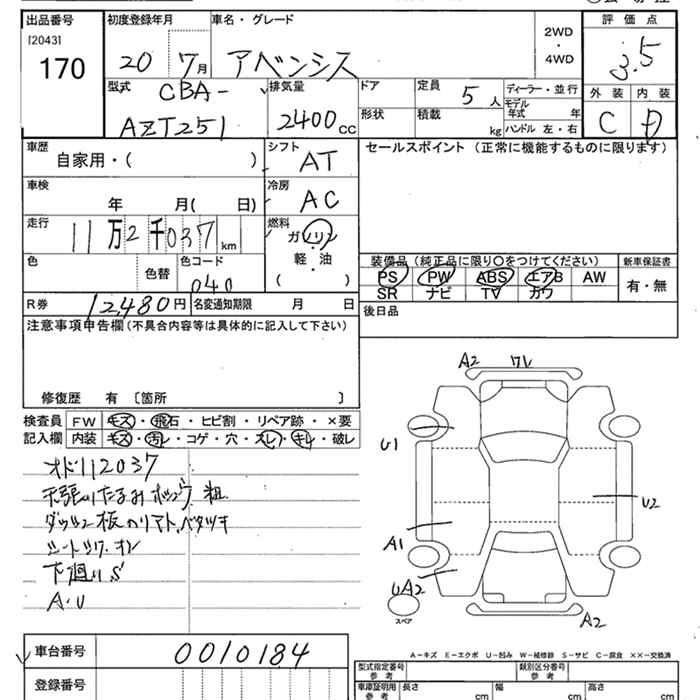 出品番号 初度登録年月 車名・グレード 評価点
[2043]
170
20 7月 アベンシス
2WD
・
4WD
3.5
外装 内装
C D
型式 CBA-
AZT251
排気量
2400cc
ドア 定員 5人 ディーラー・並行
形状 積載 kg
モデル年式 年
ハンドル 左・右
車歴
自家用・( )
シフト
AT
セールスポイント (正常に機能するものに限ります)
車検
年 月( 日)
冷房
AC
走行
11万2千037km
燃料
ガソリン
・
軽・油
( )
色 色替 色コード
040
装備品 (純正品に限り○をつけてください) 新車保証書
PS PW ABS エアB AW 有・無
SR ナビ TV カワ
R券 12,480円 名変通知期限 月 日
後日品
注意事項申告欄(不具合内容等は具体的に記入して下さい)
修復歴 有 〔箇所 〕
検査員 FW キズ・飛石・ヒビ割・リペア跡・×要
記入欄 内装 キズ・汚レ・コゲ・穴・スレ・キレ・破レ
オド112037
天張りたるみ
粗
下廻りS
A・U
A2 ワレ
U1
U2
A1
UA2
スペア
A2
車台番号 0010184
登録番号
A-キズ E-エクボ U-凹み W-補修跡 S-サビ C-腐食 ××-交換済
型式指定番号
参考
類別区分番号
参考
車庫証明用
参考
長さ cm 幅 cm 高さ cm